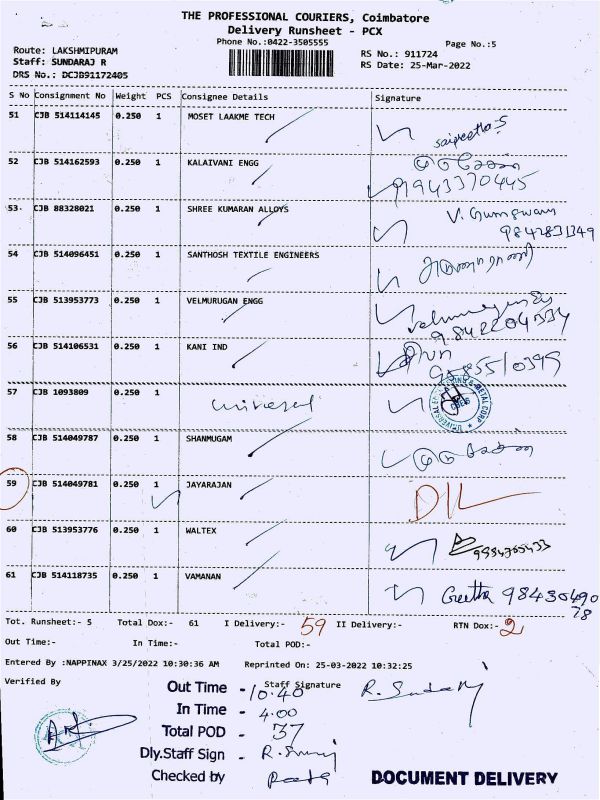 THE PROFESSIONAL COURIERS, Coimbatore
Delivery Runsheet - PCX
Phone No.:0422-3505555
Page No.:5
Route: LAKSHMIPURAM
Staff: SUNDARAJ R
DRS No.: DCJB91172405
RS No.: 911724
RS Date: 25-Mar-2022
S No Consignment No Weight PCS Consignee Details Signature
51 CJB 514114145 0.250 1 MOSET LAAKME TECH
52 CJB 514162593 0.250 1 KALAIVANI ENGG 91943370445
53 CJB 88328021 0.250 1 SHREE KUMARAN ALLOYS
9842831349
54 CJB 514096451 0.250 1 SANTHOSH TEXTILE ENGINEERS
55 CJB 513953773 0.250 1 VELMURUGAN ENGG
56 CJB 514106531 0.250 1 KANI IND
57 CJB 1093809 0.250 1 universal
58 CJB 514049787 0.250 1 SHANMUGAM
59 CJB 514049781 0.250 1 JAYARAJAN D/L
60 CJB 513953776 0.250 1 WALTEX
61 CJB 514118735 0.250 1 VAMANAN Geetha 98430490
78
Tot. Runsheet:- 5 Total Dox:- 61 I Delivery:- 59 II Delivery:- RTN Dox:- 2
Out Time:- In Time:- Total POD:-
Entered By :NAPPINAX 3/25/2022 10:30:36 AM Reprinted On: 25-03-2022 10:32:25
Verified By Staff Signature
Out Time - 10.40
In Time - 4.00
Total POD - 37
Dly.Staff Sign -
Checked by
DOCUMENT DELIVERY